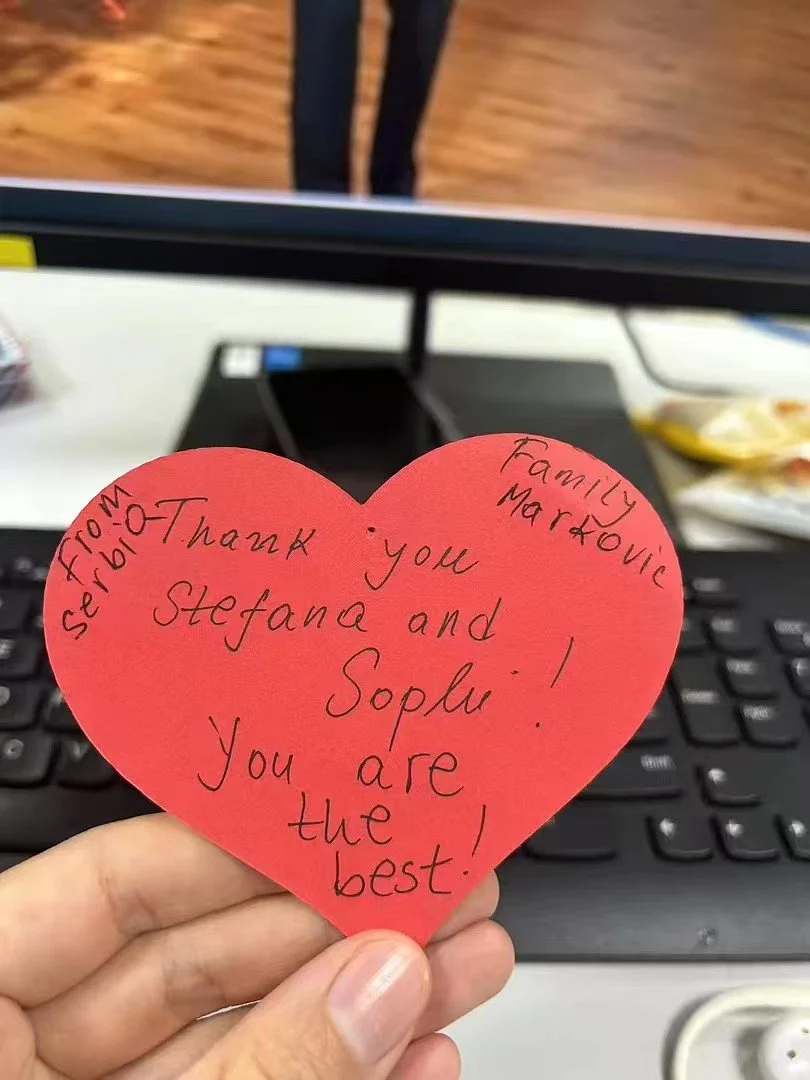 From
Serbia
Family
Markovic
Thank you
Stefana and
Sophi!
You are
the
best!